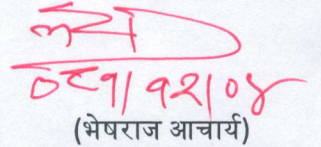 ०८१/१२/०४
(भेषराज आचार्य)